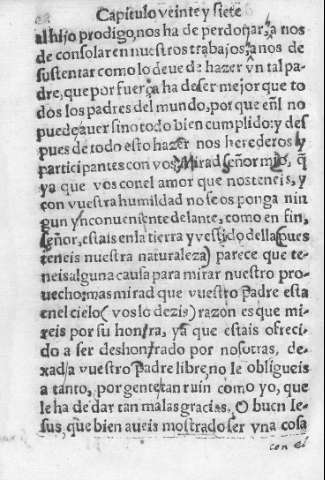 Capitulo veinte y siete
al hijo prodigo, nos ha de perdonar, a nos
de consolar en nuestros trabajos, a nos de
sustentar como lo deue de hazer vn tal pa-
dre, que por fuerça ha de ser mejor que to
dos los padres del mundo, por que eñl no
puede auer sino todo bien cumplido: y des
pues de todo esto hazer nos herederos y
participantes con vos. Mirad señor mio, q̃
ya que vos con el amor que nos teneis, y
con vuestra humildad no se os ponga nin
gun ynconueniente delante, como en fin,
señor, estais en la tierra y vestido della (pues
teneis nuestra naturaleza) parece que te-
neis alguna causa para mirar nuestro pro-
uecho: mas mirad que vuestro Padre esta
en el cielo (vos lo dezis) razon es que mi-
reis por su honrra, ya que estais ofreci-
do a ser deshonrrado por nosotras, de-
xad a vuestro Padre libre, no le obligueis
a tanto, por gente tan ruin como yo, que
le ha de dar tan malas gracias. O buen Ie-
sus, que bien aueis mostrado ser vna cosa
con el